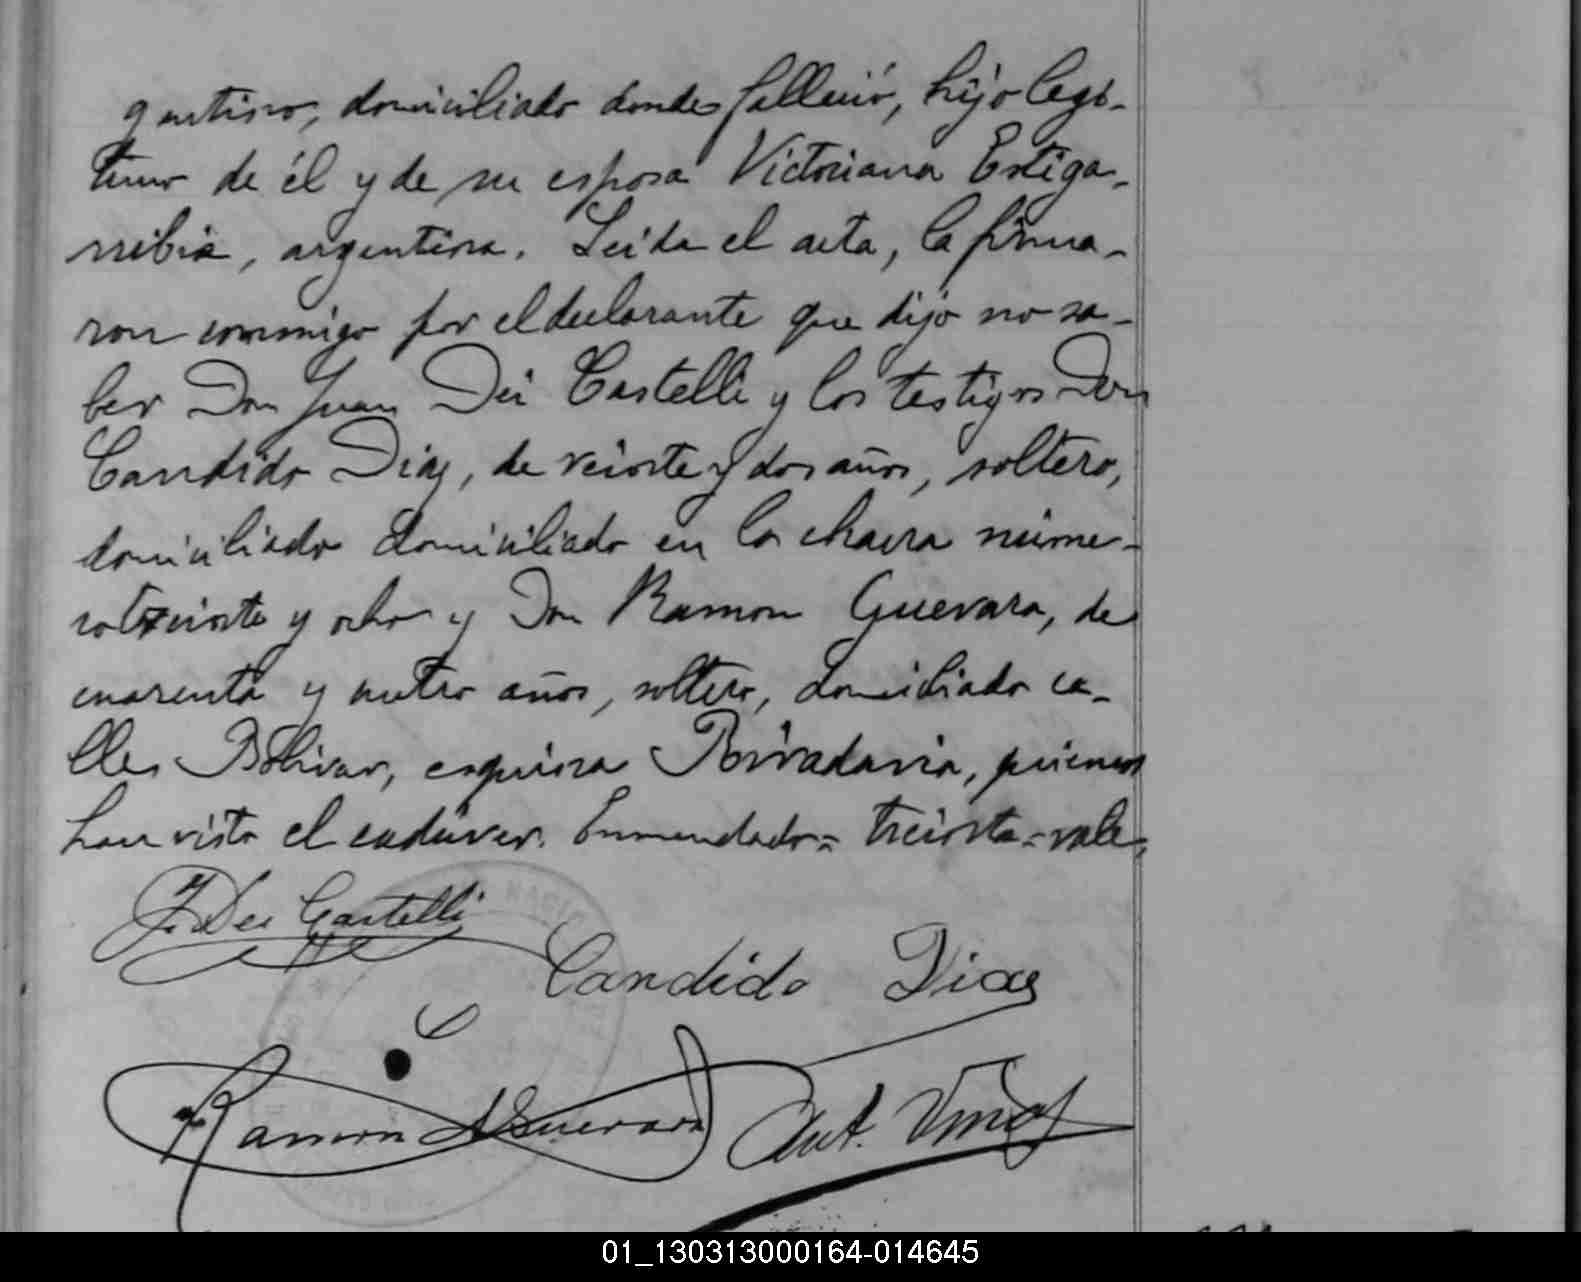 gentino, domiciliado donde falleció, hijo legí-
timo de él y de su esposa Victoriana Estiga-
rribia, argentina. Leida el acta, la firma-
ron conmigo por el declarante que dijo no sa-
ber Don Juan Dei Castelli y los testigos Don
Candido Diaz, de veinte y dos años, soltero,
domiciliado domiciliado en la chacra núme-
ro treinta y ocho y Don Ramon Guevara, de
cuarenta y cuatro años, soltero, domiciliado ca-
lles Bolivar, esquina Rivadavia, quienes
han visto el cadáver. Enmendado = treinta = vale.
J. Dei Castelli
Candido Diaz
Ramon Guevara Ant.
01_130313000164-014645